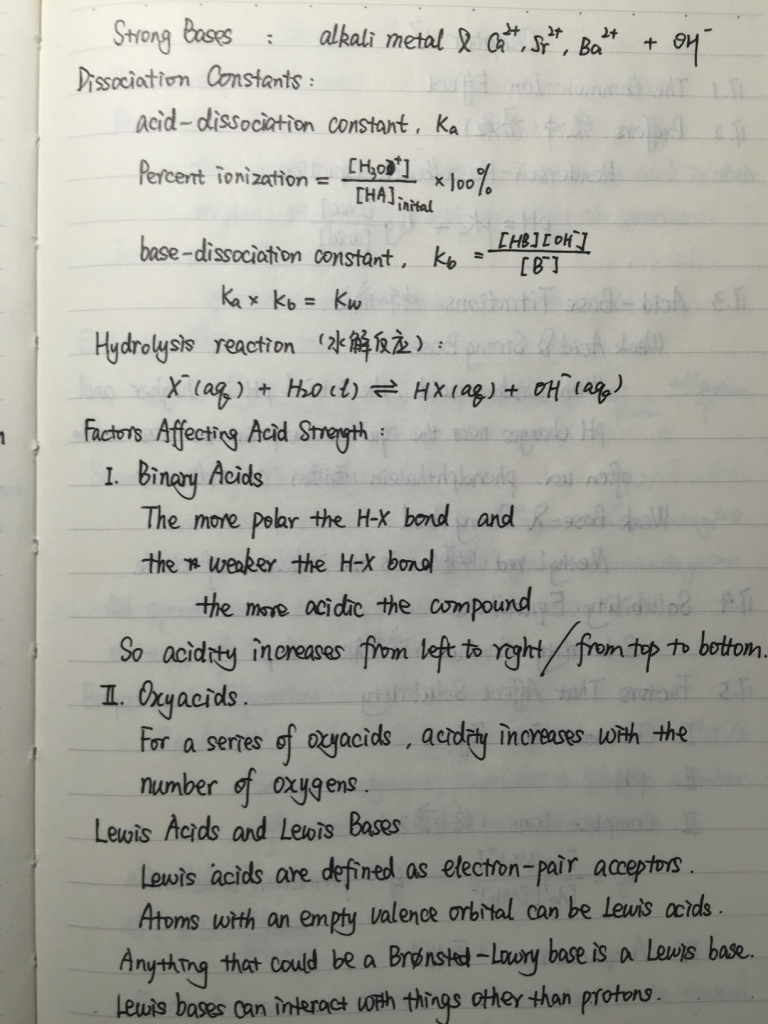 Strong Bases : alkali metal & Ca²⁺, Sr²⁺, Ba²⁺ + OH⁻
Dissociation Constants :
acid-dissociation constant, Ka
Percent ionization = [H₃O⁺] / [HA]inital × 100%
base-dissociation constant, Kb = [HB][OH⁻] / [B⁻]
Ka × Kb = Kw
Hydrolysis reaction (水解反应) :
X⁻(aq) + H₂O(l) ⇌ HX(aq) + OH⁻(aq)
Factors Affecting Acid Strength :
I. Binary Acids
The more polar the H-X bond and
the weaker the H-X bond
the more acidic the compound
So acidity increases from left to right / from top to bottom.
II. Oxyacids.
For a series of oxyacids, acidity increases with the
number of oxygens.
Lewis Acids and Lewis Bases
Lewis acids are defined as electron-pair acceptors.
Atoms with an empty valence orbital can be Lewis acids.
Anything that could be a Brønsted-Lowry base is a Lewis base.
Lewis bases can interact with things other than protons.